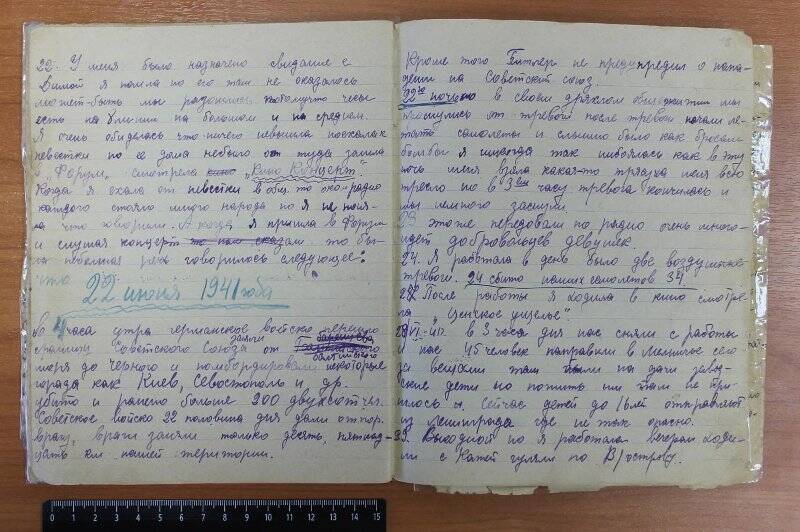 22. У меня было назначено свидание с
Димой я пошла но его там не оказалось
может-быть мы разошлись потомучто часы
есть на Улиции на большом и на среднем.
Я очень обиделась что ничего невышло поехала к
невестки но ее дома небыло от туда зашла
в „Форум" смотрела кино „Кино Концерт.
Когда я ехала от невестки в общ. то около радио
каждого стояло много народа но я не поня-
ла что говорили. А когда я пришла в Форум
и слушая концерт то нам сказали что бы-
ла небольшая речь говорилось следующее:
что
22 июня 1941 года
в 4 часа утра германское войско перешло
границы Советского Союза заняли от Баренцева
Балтийского
моря до Черного и помбордировали некоторые
города как Киев, Севостополь и др.
убито и ранено больше 200 двухсот ч.
Советское войско 22 половина дня дали отпор
врагу, враги заняли только десять, пятнад-
цать км нашей територии.
Кроме того Гитлер не предупредил о напа-
дении на Советский союз.
22го ночью в своем дряхлом общежитии мы
проснулись от тревоги после тревоги начали ле-
тать самолеты и слышно было как бросали
бомбы я никогда так небоялась как в эту
ночь меня взяла какая-то трязка меня всю
трясло но в 3ем часу тревога кончилась и
мы немного заснули.
23 этоже передовали по радио очень много
идет добровольцев девушек.
24. Я работала в день было две воздушные
тревоги. 24 сбито наших самолетов 34
После работы я ходила в кино смотре-
ла „ущелье".
VI-41г. в 3 часа дня нас сняли с работы
и нас 45 человек направили в село
за вещами там были на дачи завод-
ские дети но пожить им там не при-
шлось. Сейчас детей до 16 лет отправляют
из Ленинграда где не так опасно.
29. Выходной но я работала вечером ходи-
ли с Катей гуляли по В/острову.
0 1 2 3 4 5 6 7 8 9 10 11 12 13 14 15